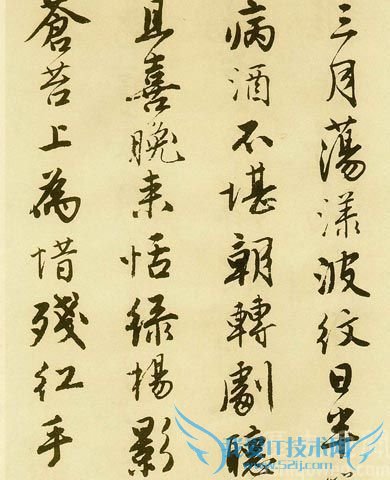 三月蕩漾波紋日半
病酒不堪朝轉劇聽
且喜晚来恬緑楊影
蒼苔上為惜殘紅手
我爱IT技术网
www.52ij.com